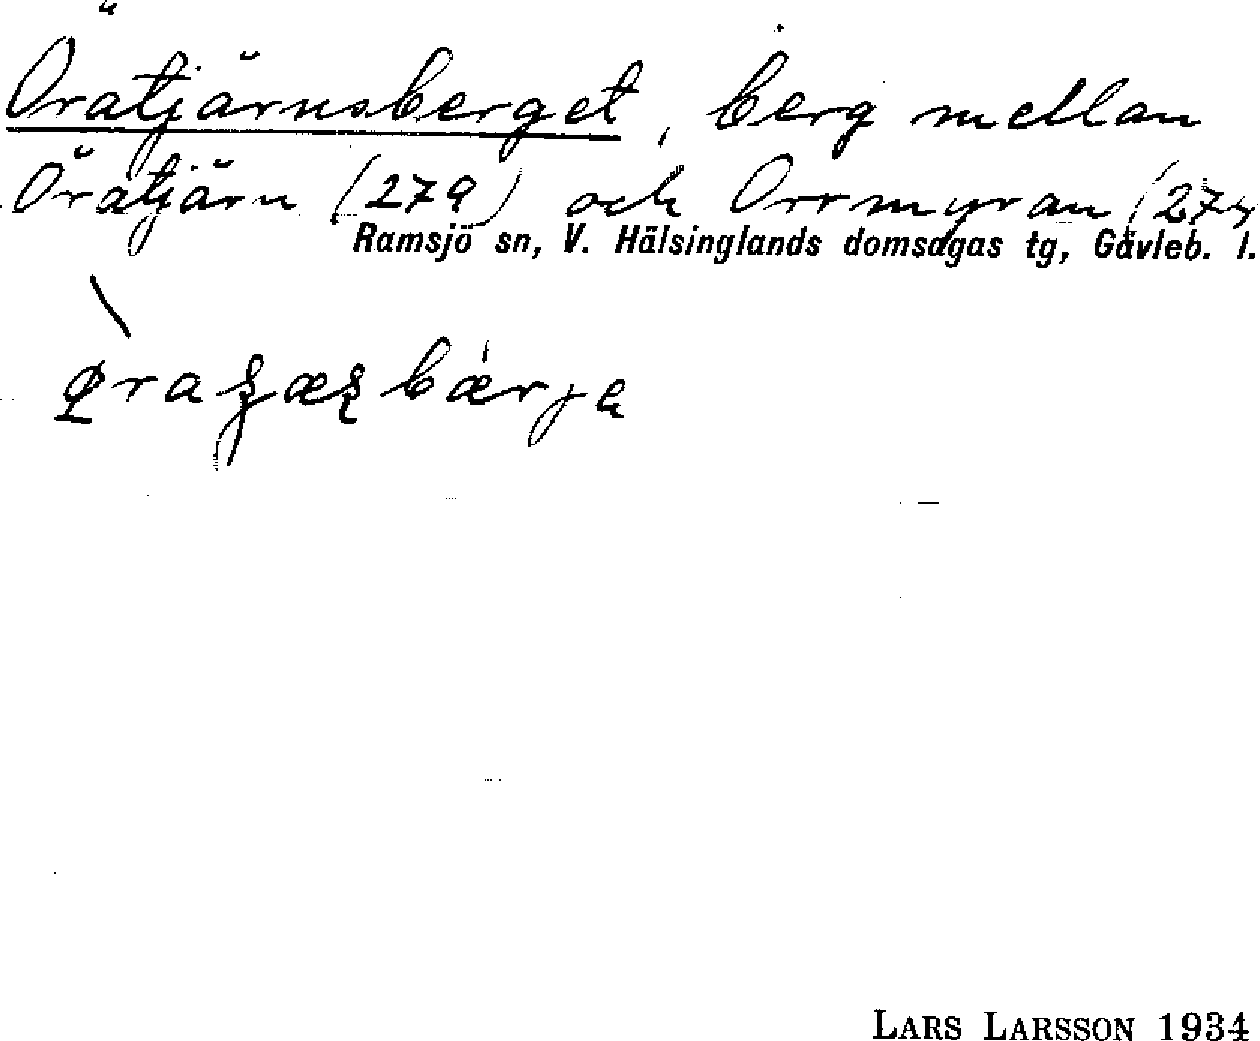 Öratjärnsberget, berg mellan
Öratjärn (279) och Orrmyran (274
Ramsjö sn, V. Hälsinglands domsagas tg, Gävleb. l.
LARS LARSSON 1934